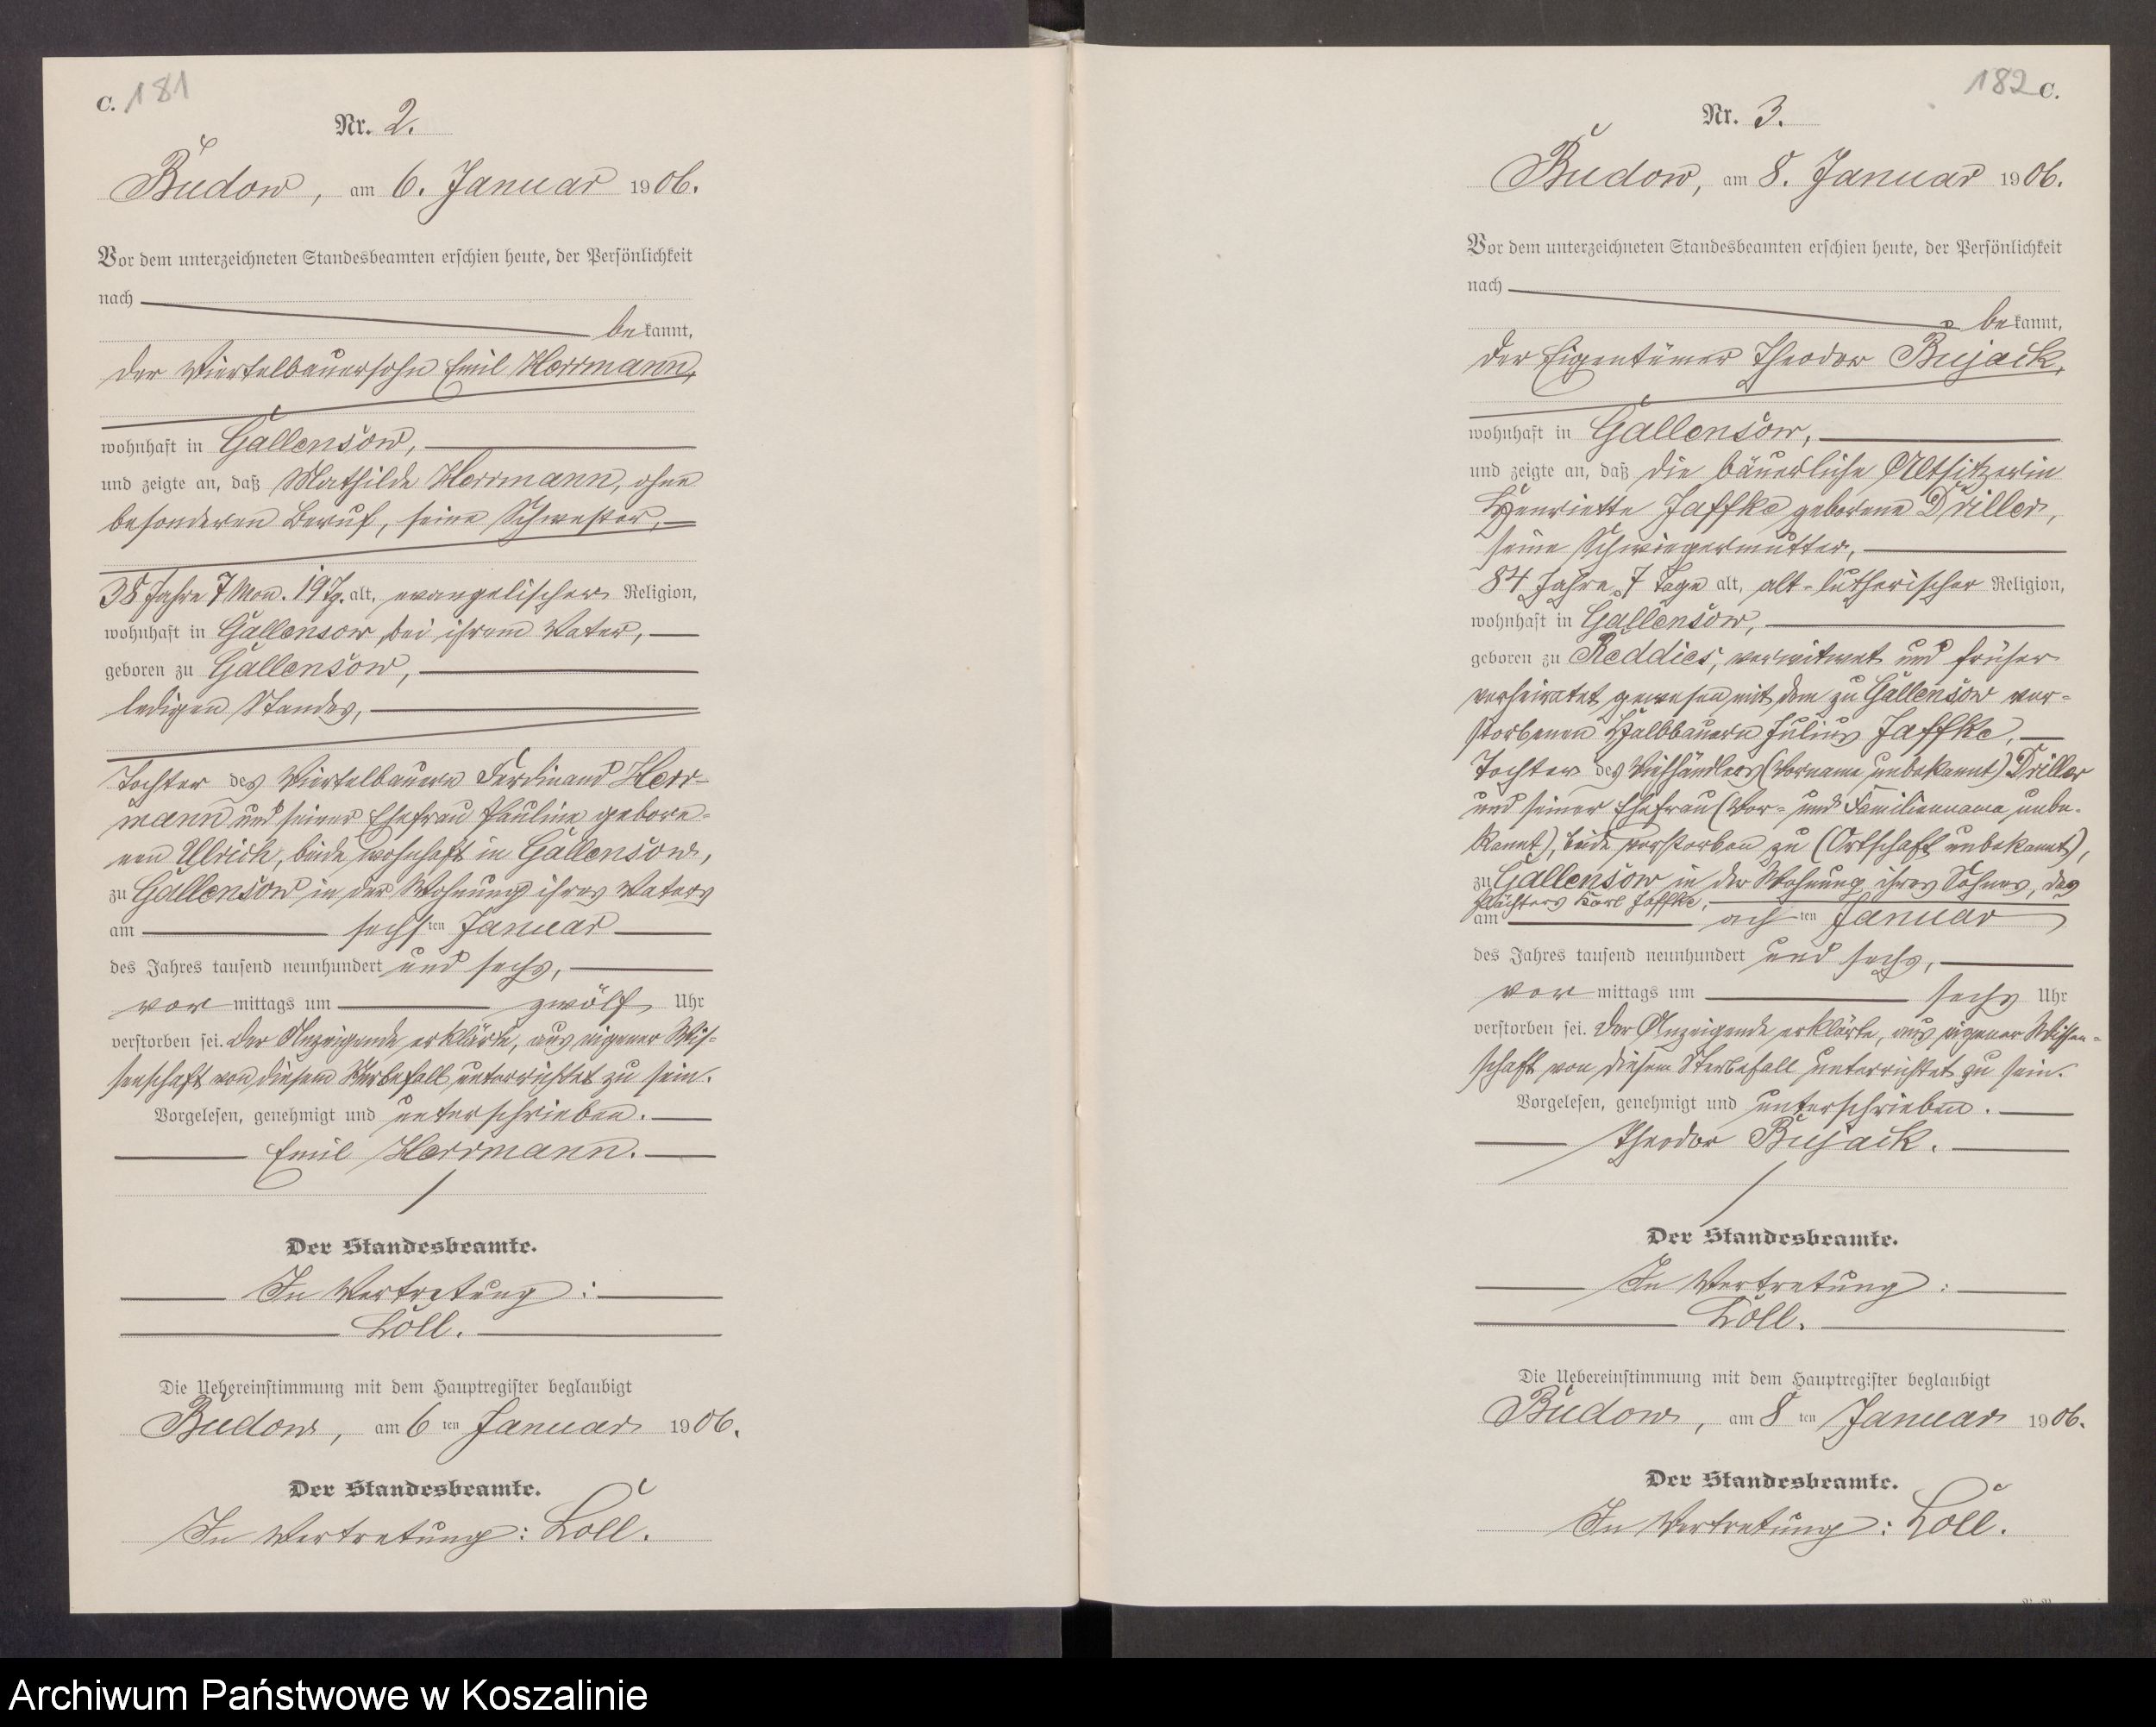 C. 181
Nr. 2.
Budow, am 6. Januar 1906.
Vor dem unterzeichneten Standesbeamten erschien heute, der Persönlichkeit
nach
bekannt,
der Viertelbauersohn Emil Herrmann,
wohnhaft in Gallensow,
und zeigte an, daß Mathilde Herrmann, ohne
besonderen Beruf, seine Schwester,
38 Jahre 7 Mon. 19 Tg. alt, evangelischer Religion,
wohnhaft in Gallensow, bei ihrem Vater,
geboren zu Gallensow,
ledigen Standes,
Tochter des Viertelbauern Ferdinand Herr-
mann und seiner Ehefrau Pauline gebore-
nen Ulrich, beide wohnhaft in Gallensow,
zu Gallensow in der Wohnung ihres Vaters
am sechsten Januar
des Jahres tausend neunhundert und sechs,
vor mittags um zwölf Uhr
verstorben sei. Der Anzeigende erklärte, aus eigener Wis-
senschaft von diesem Sterbefall unterrichtet zu sein.
Vorgelesen, genehmigt und unterschrieben.
Emil Herrmann.
Der Standesbeamte.
In Vertretung:
Löll.
Die Uebereinstimmung mit dem Hauptregister beglaubigt
Budow, am 6 ten Januar 1906.
Der Standesbeamte.
In Vertretung: Löll.
182 C.
Nr. 3.
Budow, am 8. Januar 1906.
Vor dem unterzeichneten Standesbeamten erschien heute, der Persönlichkeit
nach
bekannt,
der Eigentümer Theodor Bujack,
wohnhaft in Gallensow,
und zeigte an, daß die bäuerliche Altsitzerin
Henriette Jaffke geborene Driller,
seine Schwiegermutter,
84 Jahre, 7 Tage alt, alt-lutherischer Religion,
wohnhaft in Gallensow,
geboren zu Reddies, verwitwet und früher
verheiratet gewesen mit dem zu Gallensow ver-
storbenen Halbbauern Julius Jaffke,
Tochter des Viehhändlers (Vorname unbekannt) Driller
und seiner Ehefrau (Vor- und Familienname unbe-
kannt), beide verstorben zu (Ortschaft unbekannt),
zu Gallensow in der Wohnung ihres Sohnes, des
Pächters Karl Jaffke,
am achten Januar
des Jahres tausend neunhundert und sechs,
vor mittags um sechs Uhr
verstorben sei. Der Anzeigende erklärte, aus eigener Wissen-
schaft von diesem Sterbefall unterrichtet zu sein.
Vorgelesen, genehmigt und unterschrieben.
Theodor Bujack.
Der Standesbeamte.
In Vertretung:
Löll.
Die Uebereinstimmung mit dem Hauptregister beglaubigt
Budow, am 8 ten Januar 1906.
Der Standesbeamte.
In Vertretung: Löll.
Archiwum Państwowe w Koszalinie